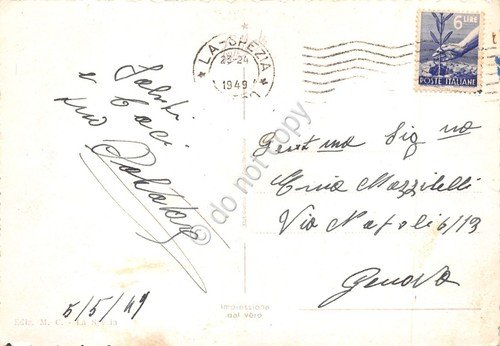 LA SPEZIA
23-24
1949
6 LIRE
POSTE ITALIANE
Saluti
e baci
tuo
5/5/49
Gent ma Sig na
Mazzitelli
Via Napoli 6/13
Genova
Impressione
dal vero
Ediz. M. C. - La Spezia
do not copy